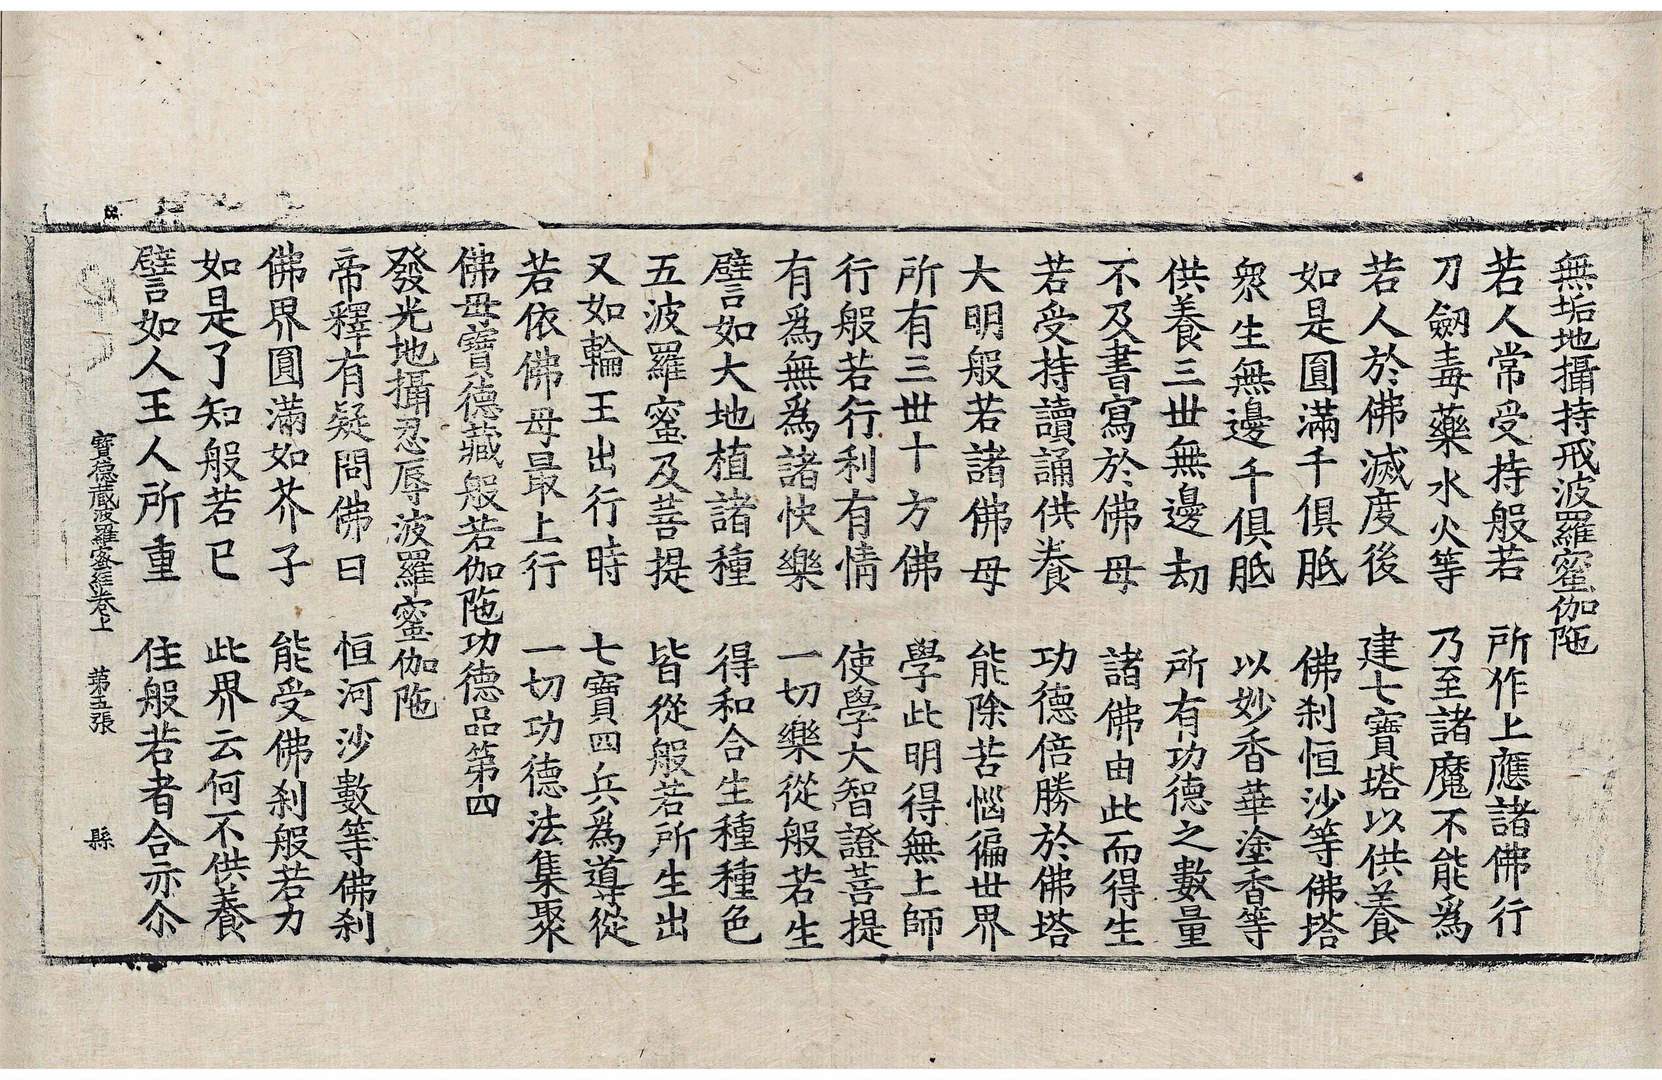 無垢地攝持戒波羅蜜伽陁
若人常受持般若 所作上應諸佛行
刀劒毒藥水火等 乃至諸魔不能爲
若人於佛滅度後 建七寶塔以供養
如是圓滿千俱胝 佛刹恒沙等佛塔
衆生無邊千俱胝 以妙香華塗香等
供養三世無邊劫 所有功德之數量
不及書寫於佛母 諸佛由此而得生
若受持讀誦供養 功德倍勝於佛塔
大明般若諸佛母 能除苦惱徧世界
所有三世十方佛 學此明得無上師
行般若行利有情 使學大智證菩提
有爲無爲諸快樂 一切樂從般若生
譬如大地植諸種 得和合生種種色
五波羅蜜及菩提 皆從般若所生出
又如輪王出行時 七寶四兵爲導從
若依佛母最上行 一切功德法集聚
佛母寶德藏般若伽陁功德品第四
發光地攝忍辱波羅蜜伽陁
帝釋有疑問佛曰 恒河沙數等佛刹
佛界圓滿如芥子 能受佛刹般若力
如是了知般若已 此界云何不供養
譬如人王人所重 住般若者合亦尒
寶德藏波羅蜜經卷上 第五張 縣